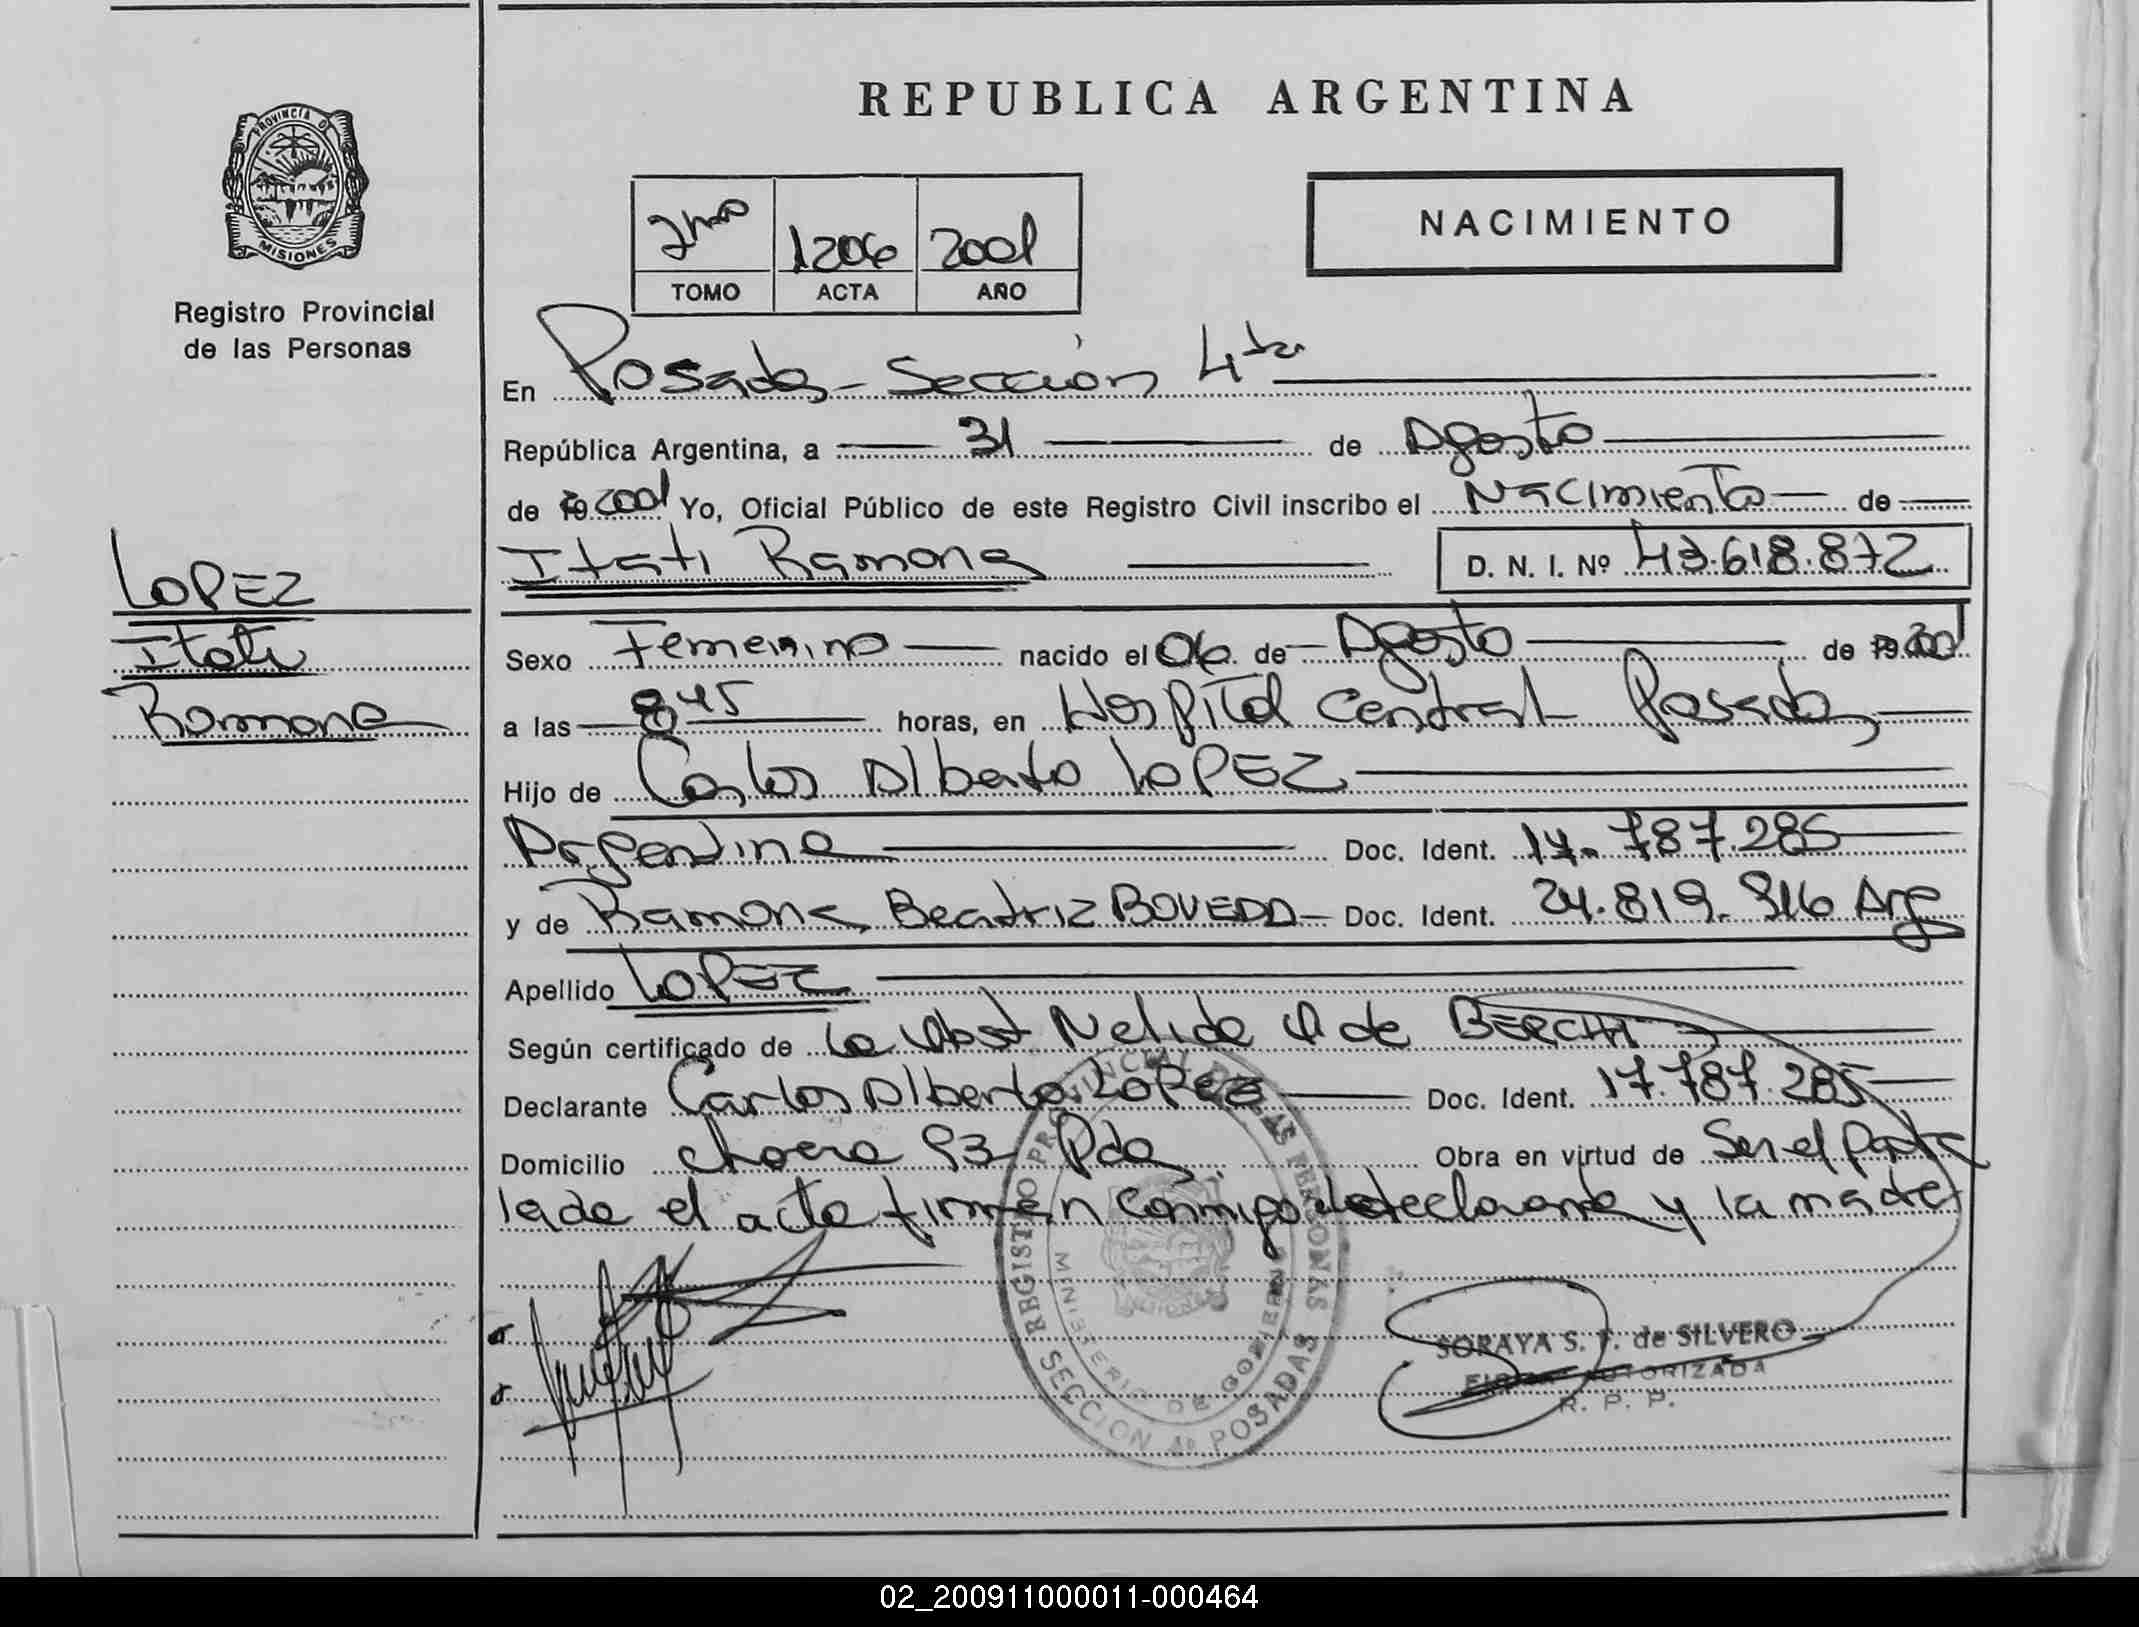 REPUBLICA ARGENTINA
PROVINCIA DE
MISIONES
Registro Provincial
de las Personas
2do 1206 2001
TOMO ACTA AÑO
NACIMIENTO
En Posadas - Sección 4ta
República Argentina, a 31 de Agosto
de 19 2001 Yo, Oficial Público de este Registro Civil inscribo el Nacimiento de
Itati Ramona D. N. I. Nº 43.618.872
LOPEZ
Itati
Ramona
Sexo Femenino nacido el 06 de Agosto de 19 2001
a las 8 45 horas, en Hospital Central Posadas
Hijo de Carlos Alberto LOPEZ
Argentina Doc. Ident. 17.787.285
y de Ramona Beatriz BOVEDA Doc. Ident. 24.819.316 Arg
Apellido LOPEZ
Según certificado de La Obst Nelida de
Declarante Carlos Alberto LOPEZ Doc. Ident. 17.787.285
Domicilio chacra 93 Pdas Obra en virtud de Ser el padre
leida el acta firman conmigo el declarante y la madre
REGISTRO PROVINCIAL DE LAS PERSONAS
MINISTERIO DE GOBIERNO
SECCION 4º POSADAS
SORAYA S. F. de SILVERO
FIRMA AUTORIZADA
R. P. P.
02_200911000011-000464